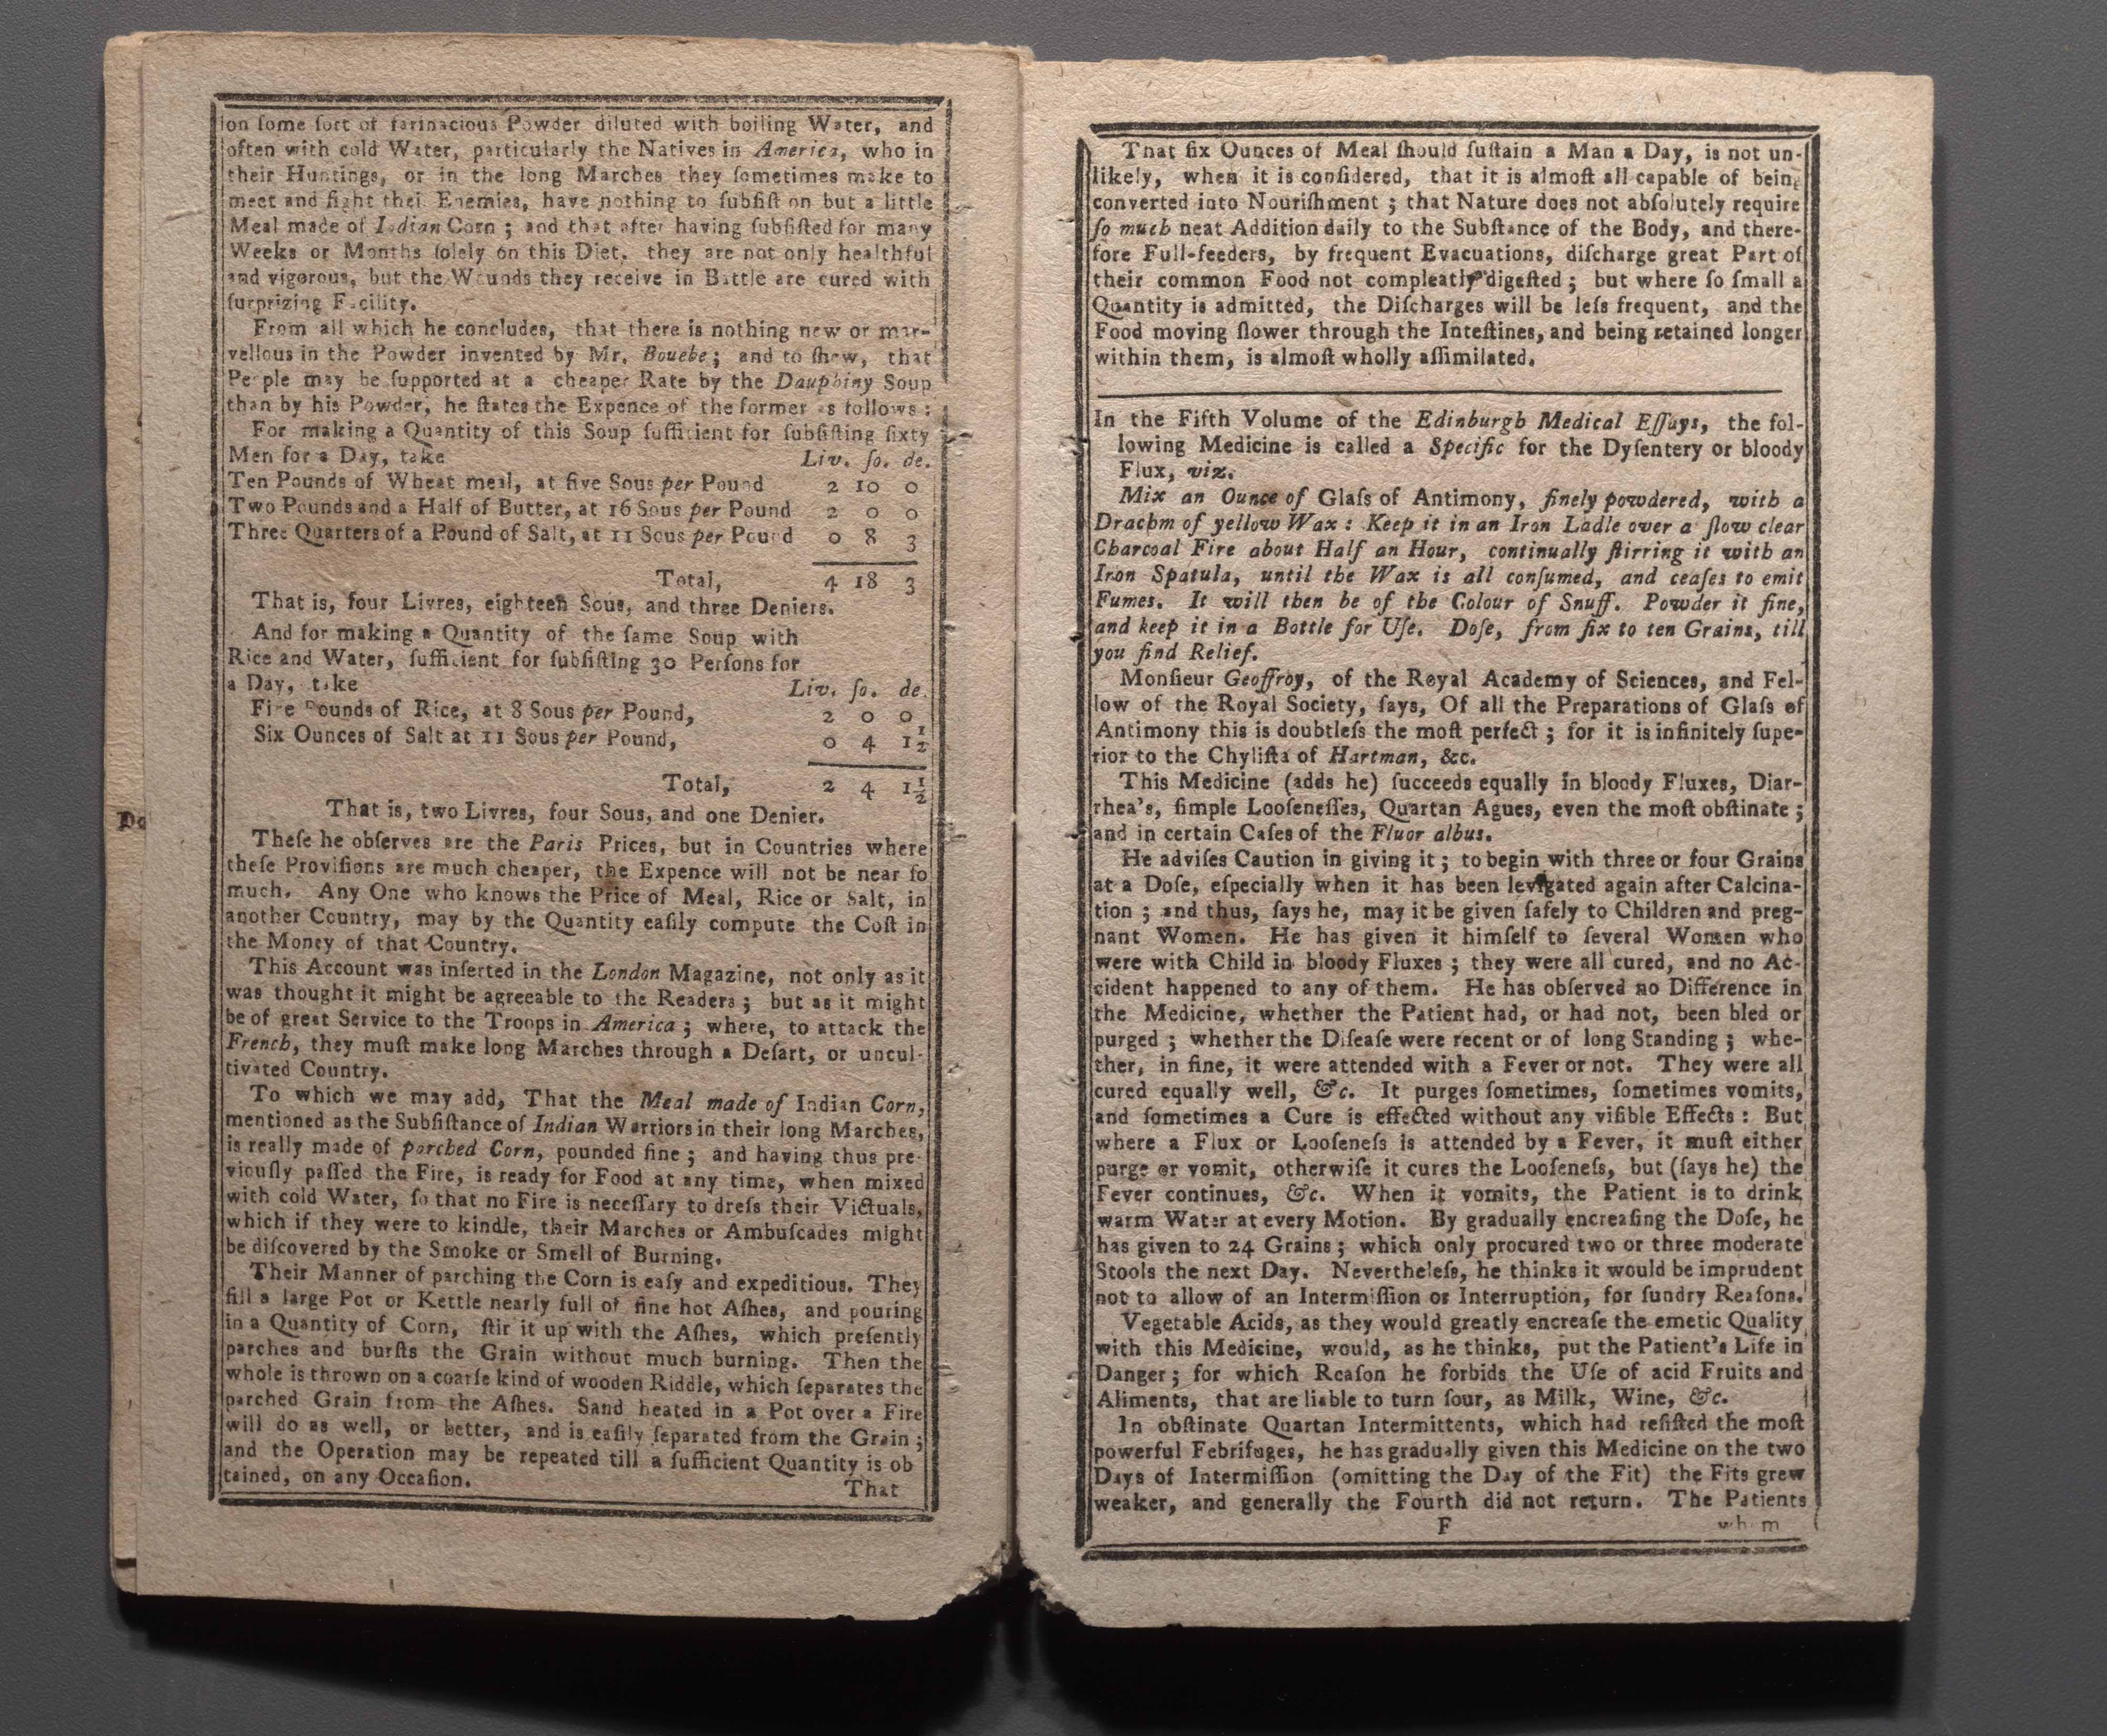 on ſome ſort of farinacious Powder diluted with boiling Water, and
often with cold Water, particularly the Natives in America, who in
their Huntings, or in the long Marches they ſometimes make to
meet and fight thei Enemies, have nothing to ſubſiſt on but a little
Meal made of Indian Corn ; and that after having ſubſiſted for many
Weeks or Months ſolely on this Diet, they are not only healthful
and vigorous, but the Wounds they receive in Battle are cured with
ſurprizing Facility.
From all which he concludes, that there is nothing new or mar-
vellous in the Powder invented by Mr. Bouebe ; and to ſhew, that
People may be ſupported at a cheaper Rate by the Dauphiny Soup
than by his Powder, he ſtates the Expence of the former as follows :
For making a Quantity of this Soup ſufficient for ſubſiſting ſixty
Men for a Day, take Liv. ſo. de.
Ten Pounds of Wheat meal, at five Sous per Pound 2 10 0
Two Pounds and a Half of Butter, at 16 Sous per Pound 2 0 0
Three Quarters of a Pound of Salt, at 11 Sous per Pound 0 8 3
Total, 4 18 3
That is, four Livres, eighteen Sous, and three Deniers.
And for making a Quantity of the ſame Soup with
Rice and Water, ſufficient for ſubſiſting 30 Perſons for
a Day, take Liv. ſo. de.
Five Pounds of Rice, at 8 Sous per Pound, 2 0 0
Six Ounces of Salt at 11 Sous per Pound, 0 4 1½
Total, 2 4 1½
That is, two Livres, four Sous, and one Denier.
Theſe he obſerves are the Paris Prices, but in Countries where
theſe Proviſions are much cheaper, the Expence will not be near ſo
much. Any One who knows the Price of Meal, Rice or Salt, in
another Country, may by the Quantity eaſily compute the Coſt in
the Money of that Country.
This Account was inſerted in the London Magazine, not only as it
was thought it might be agreeable to the Readers ; but as it might
be of great Service to the Troops in America ; where, to attack the
French, they muſt make long Marches through a Deſart, or uncul-
tivated Country.
To which we may add, That the Meal made of Indian Corn,
mentioned as the Subſiſtance of Indian Warriors in their long Marches,
is really made of parched Corn, pounded fine ; and having thus pre-
viouſly paſſed the Fire, is ready for Food at any time, when mixed
with cold Water, ſo that no Fire is neceſſary to dreſs their Victuals,
which if they were to kindle, their Marches or Ambuſcades might
be diſcovered by the Smoke or Smell of Burning.
Their Manner of parching the Corn is eaſy and expeditious. They
fill a large Pot or Kettle nearly full of fine hot Aſhes, and pouring
in a Quantity of Corn, ſtir it up with the Aſhes, which preſently
parches and burſts the Grain without much burning. Then the
whole is thrown on a coarſe kind of wooden Riddle, which ſeparates the
parched Grain from the Aſhes. Sand heated in a Pot over a Fire
will do as well, or better, and is eaſily ſeparated from the Grain ;
and the Operation may be repeated till a ſufficient Quantity is ob
tained, on any Occaſion.
That
That ſix Ounces of Meal ſhould ſuſtain a Man a Day, is not un-
likely, when it is conſidered, that it is almoſt all capable of being
converted into Nouriſhment ; that Nature does not abſolutely require
ſo much neat Addition daily to the Subſtance of the Body, and there-
fore Full-feeders, by frequent Evacuations, diſcharge great Part of
their common Food not compleatly digeſted ; but where ſo ſmall a
Quantity is admitted, the Diſcharges will be leſs frequent, and the
Food moving ſlower through the Inteſtines, and being retained longer
within them, is almoſt wholly aſſimilated.
In the Fifth Volume of the Edinburgh Medical Eſſays, the fol-
lowing Medicine is called a Specific for the Dyſentery or bloody
Flux, viz.
Mix an Ounce of Glaſs of Antimony, finely powdered, with a
Drachm of yellow Wax : Keep it in an Iron Ladle over a ſlow clear
Charcoal Fire about Half an Hour, continually ſtirring it with an
Iron Spatula, until the Wax is all conſumed, and ceaſes to emit
Fumes. It will then be of the Colour of Snuff. Powder it fine,
and keep it in a Bottle for Uſe. Doſe, from ſix to ten Grains, till
you find Relief.
Monſieur Geoffroy, of the Royal Academy of Sciences, and Fel-
low of the Royal Society, ſays, Of all the Preparations of Glaſs of
Antimony this is doubtleſs the moſt perfect ; for it is infinitely ſupe-
rior to the Chyliſta of Hartman, &c.
This Medicine (adds he) ſucceeds equally in bloody Fluxes, Diar-
rhea's, ſimple Looſeneſſes, Quartan Agues, even the moſt obſtinate ;
and in certain Caſes of the Fluor albus.
He adviſes Caution in giving it ; to begin with three or four Grains
at a Doſe, eſpecially when it has been levigated again after Calcina-
tion ; and thus, ſays he, may it be given ſafely to Children and preg-
nant Women. He has given it himſelf to ſeveral Women who
were with Child in bloody Fluxes ; they were all cured, and no Ac-
cident happened to any of them. He has obſerved no Difference in
the Medicine, whether the Patient had, or had not, been bled or
purged ; whether the Diſeaſe were recent or of long Standing ; whe-
ther, in fine, it were attended with a Fever or not. They were all
cured equally well, &c. It purges ſometimes, ſometimes vomits,
and ſometimes a Cure is effected without any viſible Effects : But
where a Flux or Looſeneſs is attended by a Fever, it muſt either
purge or vomit, otherwiſe it cures the Looſeneſs, but (ſays he) the
Fever continues, &c. When it vomits, the Patient is to drink
warm Water at every Motion. By gradually encreaſing the Doſe, he
has given to 24 Grains ; which only procured two or three moderate
Stools the next Day. Nevertheleſs, he thinks it would be imprudent
not to allow of an Intermiſſion or Interruption, for ſundry Reaſons.
Vegetable Acids, as they would greatly encreaſe the emetic Quality
with this Medicine, would, as he thinks, put the Patient's Life in
Danger ; for which Reaſon he forbids the Uſe of acid Fruits and
Aliments, that are liable to turn ſour, as Milk, Wine, &c.
In obſtinate Quartan Intermittents, which had reſiſted the moſt
powerful Febrifuges, he has gradually given this Medicine on the two
Days of Intermiſſion (omitting the Day of the Fit) the Fits grew
weaker, and generally the Fourth did not return. The Patients
F whom